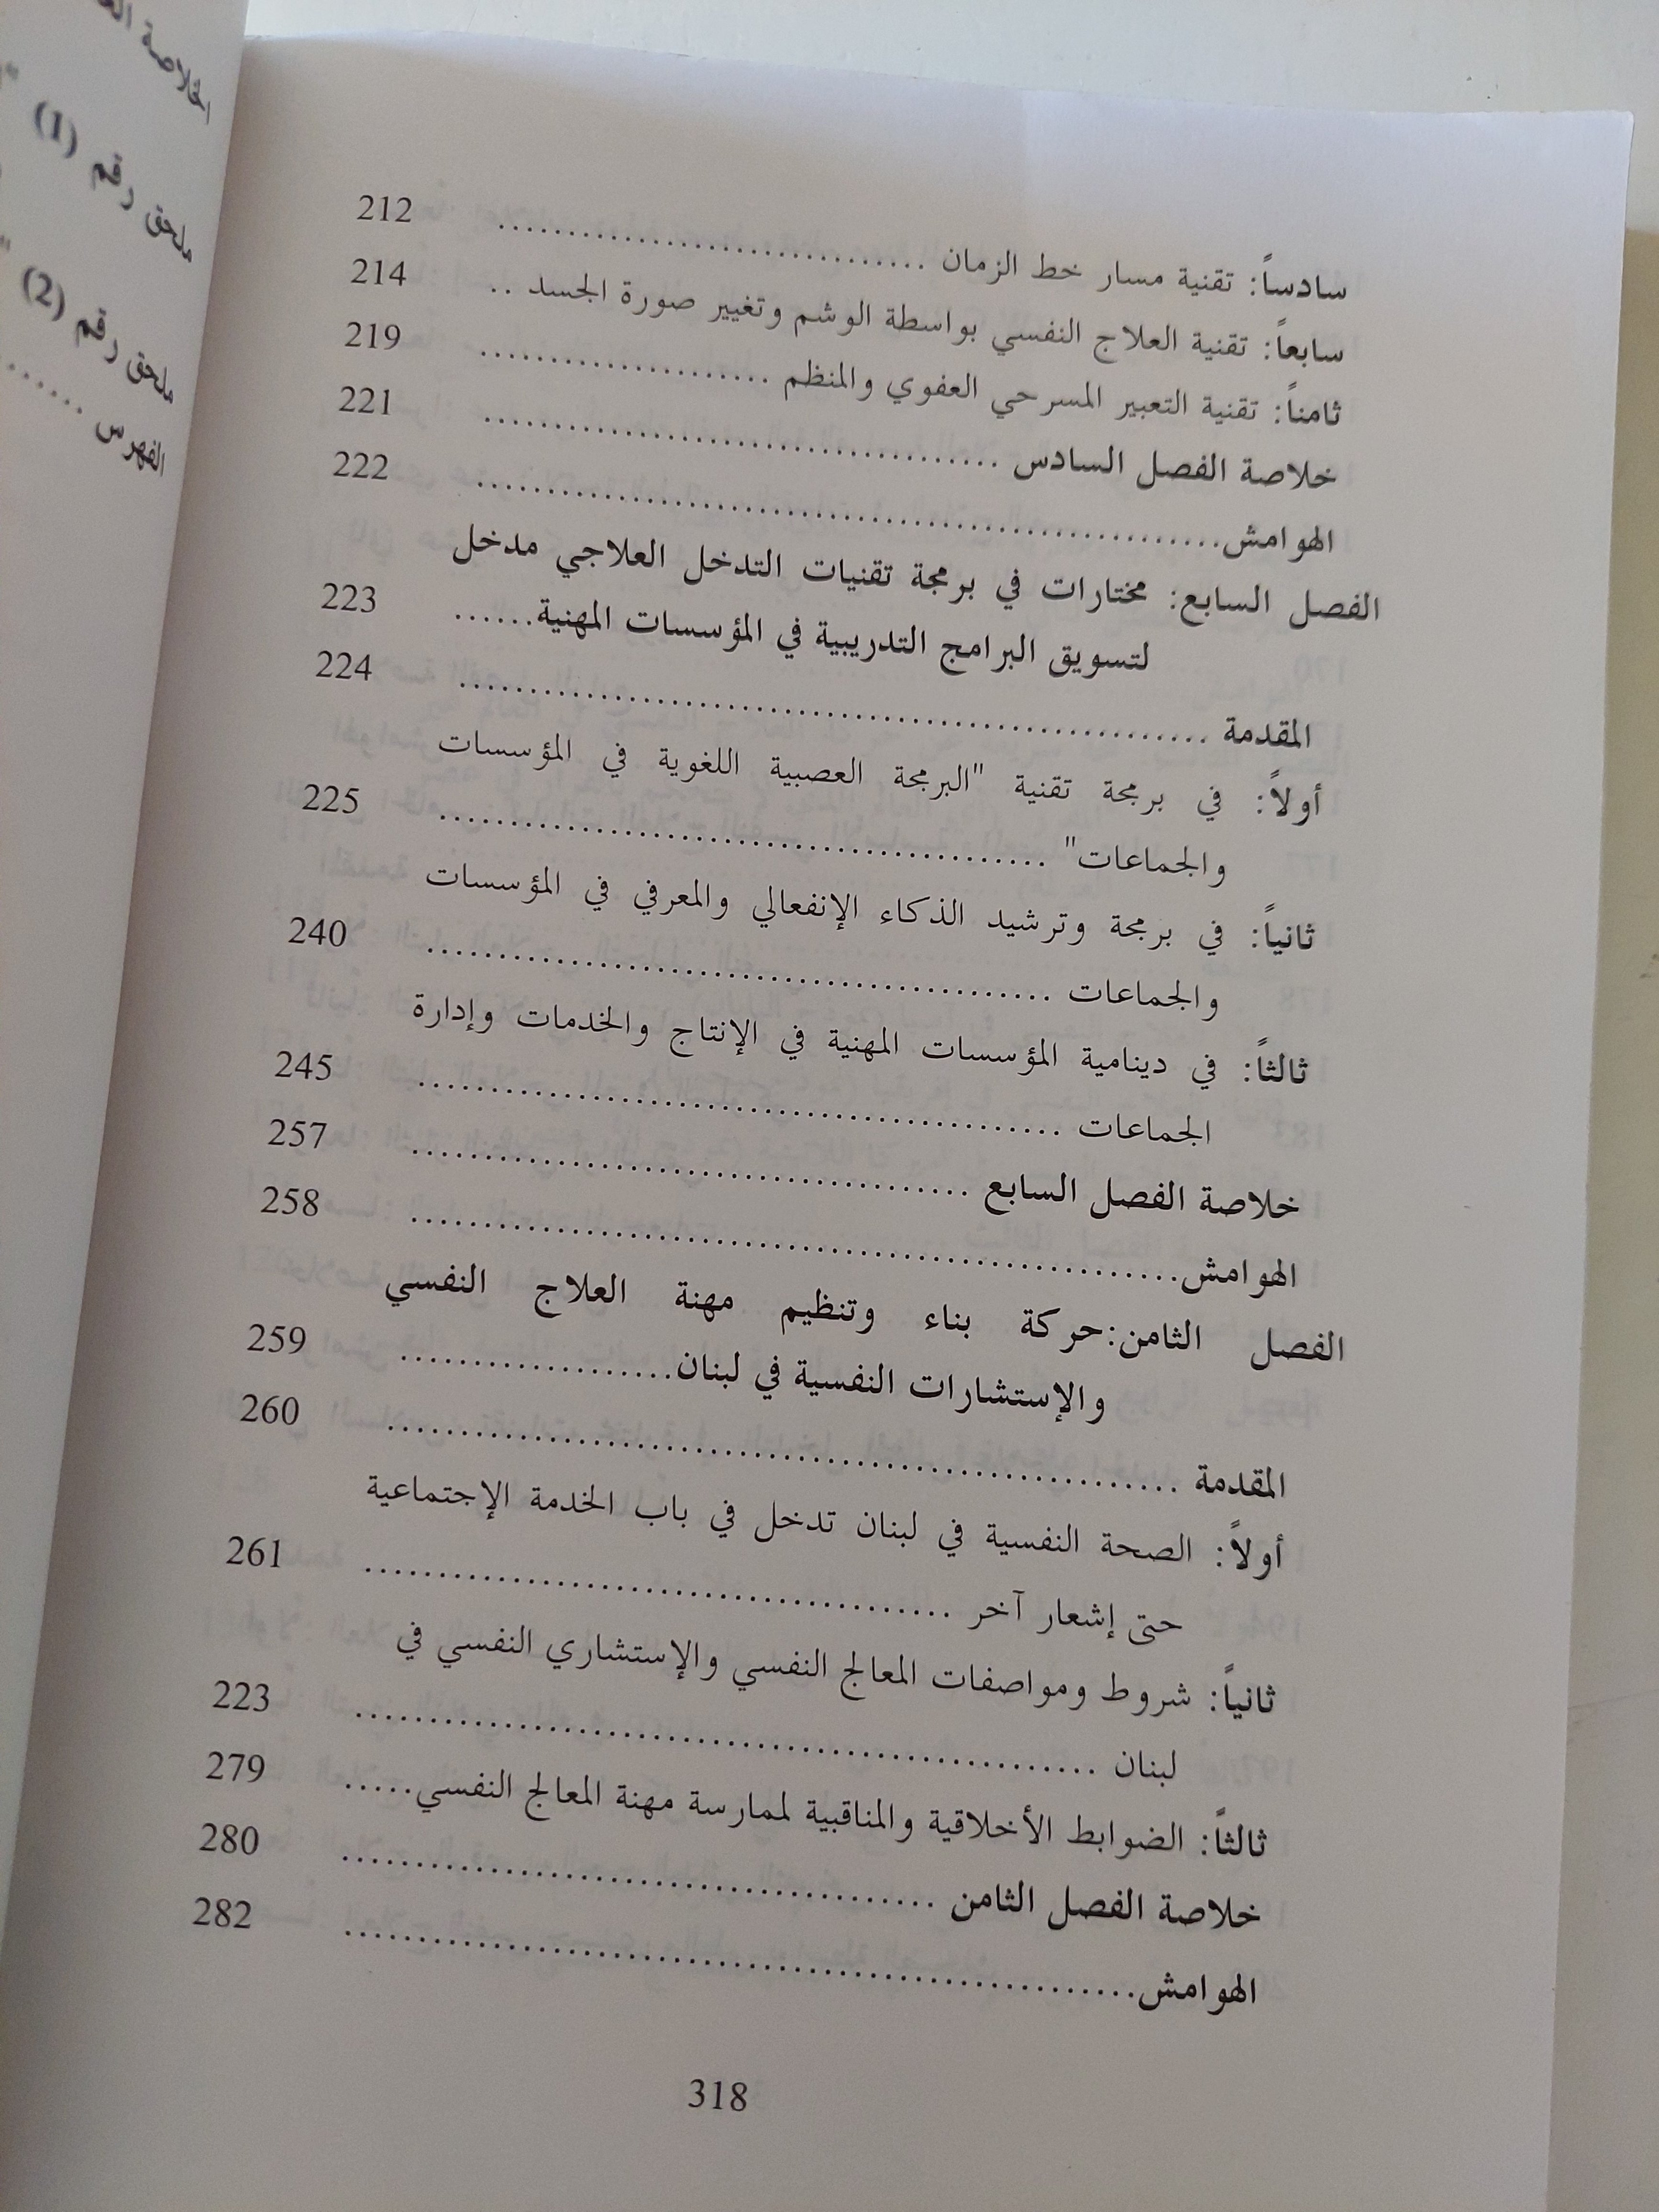 سادساً: تقنية مسار خط الزمان .............................. 212
سابعاً: تقنية العلاج النفسي بواسطة الوشم وتغيير صورة الجسد .. 214
ثامناً: تقنية التعبير المسرحي العفوي والمنظم .................... 219
خلاصة الفصل السادس .................................... 221
الهوامش.................................................... 222
الفصل السابع: مختارات في برمجة تقنيات التدخل العلاجي مدخل
لتسويق البرامج التدريبية في المؤسسات المهنية...... 223
المقدمة .................................................... 224
أولاً: في برمجة تقنية "البرمجة العصبية اللغوية في المؤسسات
والجماعات" .......................................... 225
ثانياً: في برمجة وترشيد الذكاء الإنفعالي والمعرفي في المؤسسات
والجماعات ........................................... 240
ثالثاً: في دينامية المؤسسات المهنية في الإنتاج والخدمات وإدارة
الجماعات ............................................ 245
خلاصة الفصل السابع ...................................... 257
الهوامش..................................................... 258
الفصل الثامن:حركة بناء وتنظيم مهنة العلاج النفسي
والإستشارات النفسية في لبنان................... 259
المقدمة ..................................................... 260
أولاً: الصحة النفسية في لبنان تدخل في باب الخدمة الإجتماعية
حتى إشعار آخر ........................................ 261
ثانياً: شروط ومواصفات المعالج النفسي والإستشاري النفسي في
لبنان .................................................. 223
ثالثاً: الضوابط الأخلاقية والمناقبية لممارسة مهنة المعالج النفسي..... 279
خلاصة الفصل الثامن ........................................ 280
الهوامش...................................................... 282
318
الخلاصة
ملحق رقم (1) "
ملحق رقم (2) "
الفهرس ......